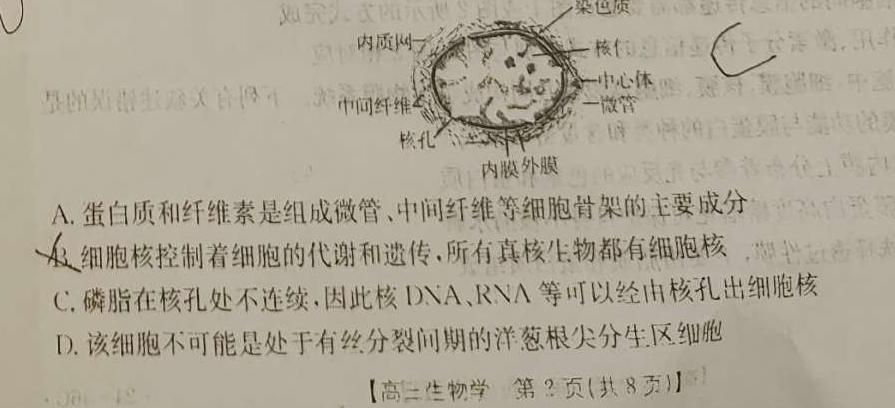 染色质
内质网
核仁
中心体
中间纤维
微管
核孔
内膜 外膜
A. 蛋白质和纤维素是组成微管、中间纤维等细胞骨架的主要成分
B. 细胞核控制着细胞的代谢和遗传,所有真核生物都有细胞核
C. 磷脂在核孔处不连续,因此核 DNA、RNA 等可以经由核孔出细胞核
D. 该细胞不可能是处于有丝分裂间期的洋葱根尖分生区细胞
【高三生物学 第 2 页(共 8 页)】